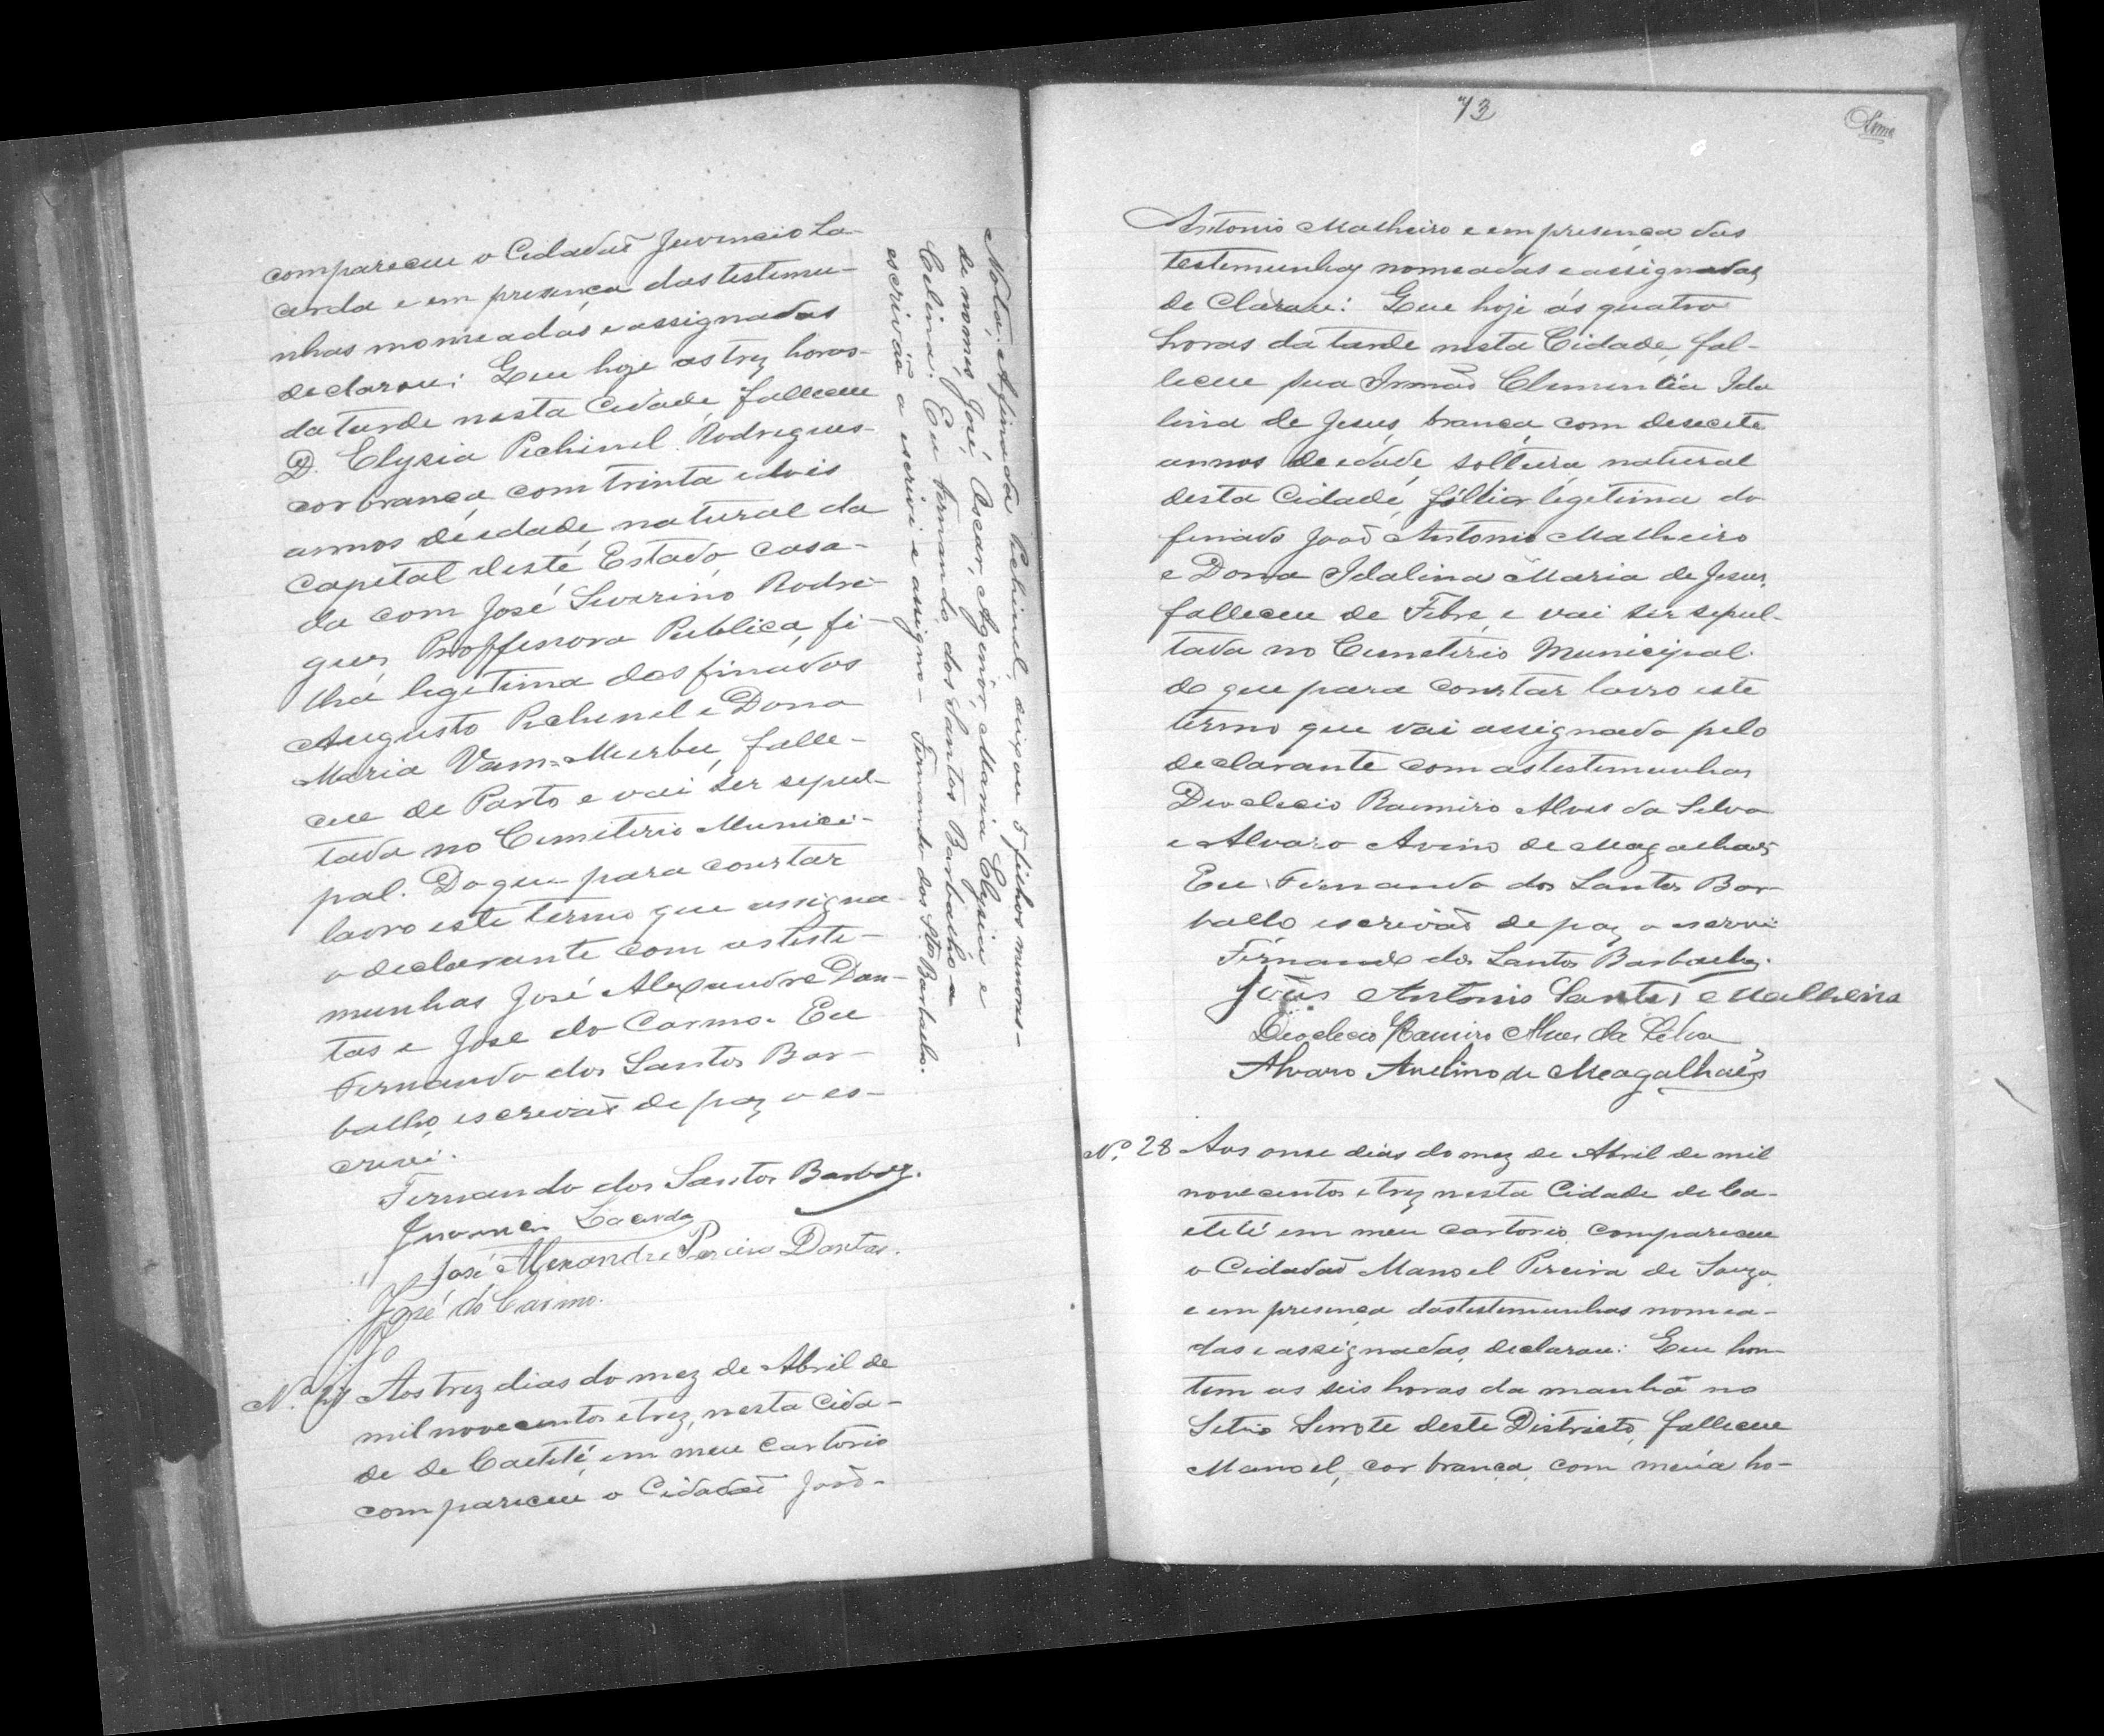 compareceu o Cidadaõ Juvencio La-
cerda e em presença das testemu-
nhas nomeadas e assignadas
declarou: Que hoje as trez horas
da tarde nesta Cidade falleceu
D. Elysia Pichinel Rodrigues
cor branca, com trinta e dois
annos de edade, natural da
Capital deste Estado, casa-
da com José Severino Rodri-
gues, Proffessora Publica, fi-
lha legitima dos finados
Augusto Pichinel e Dona
Maria Vam-Meirbu, falle-
ceu de Parto e vai ser sepul-
tada no Cemiterio Munici-
pal. Do que para constar
lavro este termo que assigna
o declarante com as teste-
munhas José Alexandre Dan-
tas e José do Carmo. Eu
Fernando dos Santos Bar-
balho, escrivaõ de paz o es-
crevi.
Fernando dos Santos Barbalho.
Juvencio Lacerda
José Alexandre Pereira Dantas.
José do Carmo.
Nota: A finada Pichinel, deixou 5 filhos menores-
de nomes José, Oscar, Agenor, Maria Elysia e
Celina. Eu Fernando dos Santos Barbalho
escrivão a escrivi e assigno- Fernando dos Stos Barbalho.
N.º 27 Aos trez dias do mez de Abril de
mil novecentos e trez, nesta Cida-
de de Caetité, em meu cartorio
compareceu o Cidadaõ Joaõ-
73
Antonio Malheiro e em presença das
testemunhas nomeadas e assignadas
declarou: Que hoje ás quatro
horas da tarde nesta Cidade, fal-
leceu sua Irmaõ Clementia Ida
lina de Jesus, branca, com desecete
annos de edade, solteira, natural
desta Cidade, fillia legitima do
finado Joaõ Antonio Malheiro
e Dona Idalina Maria de Jesus,
falleceu de Febre, e vai ser sepul-
tada no Cemeterio Municipal.
do que para constar lavro este
termo que vai assignado pelo
declarante com as testemunhas
Dioclecio Ramiro Alves da Silva
e Alvaro Avino de Magalhaẽs
Eu Fernando dos Santos Bar-
balho escrivaõ de paz o escrvi
Fernando dos Santos Barbalho.
João Antonio Santos Malheiro
Dioclecio Ramiro Alves da Silva
Alvaro Avelino de Magalhaẽs
N.º 28 Aos onse dias do mez de Abril de mil
novecentos e trez nesta Cidade de Ca-
etité em meu cartorio compareceu
o Cidadaõ Manoel Pereira de Souza
e em presença das testemunhas nomea-
das e assignadas, declarou: Que hon-
tem as seis horas da manhã no
Sitio Serrote deste Districto, falleceu
Manoel, cor branca, com meia ho-